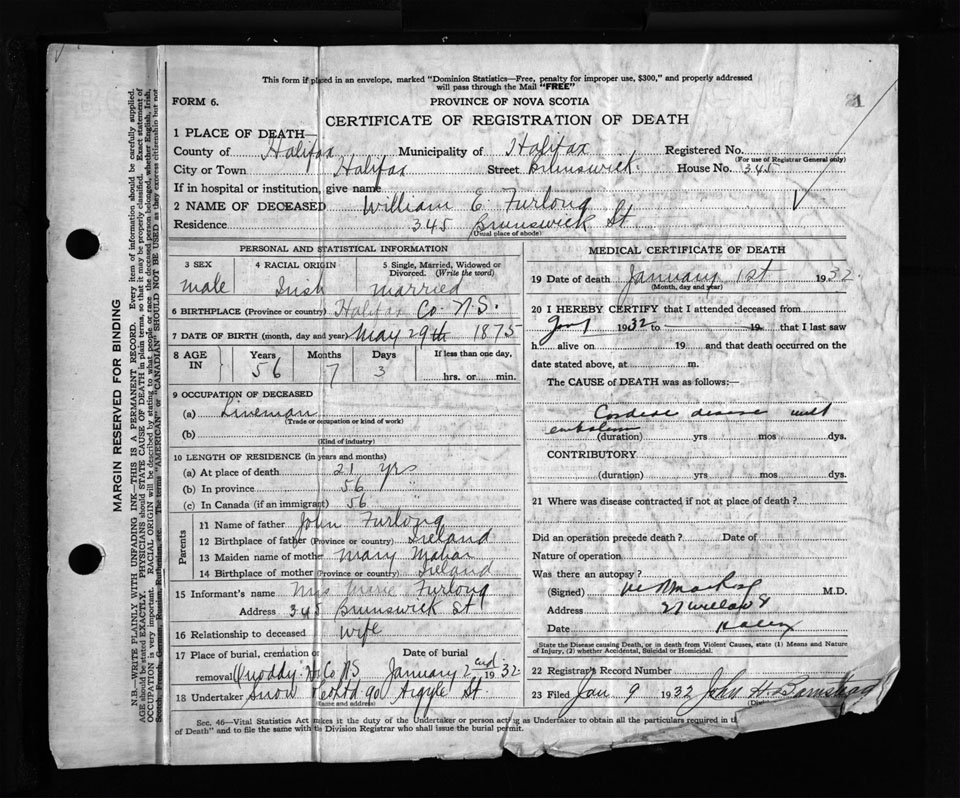 This form if placed in an envelope, marked "Dominion Statistics—Free, penalty for improper use, $300," and properly addressed
will pass through the Mail "FREE"
FORM 6.
PROVINCE OF NOVA SCOTIA
21
CERTIFICATE OF REGISTRATION OF DEATH
1 PLACE OF DEATH—
County of Halifax Municipality of Halifax Registered No.
(For use of Registrar General only)
City or Town Halifax Street Brunswick House No. 345
If in hospital or institution, give name
2 NAME OF DECEASED William E Furlong
Residence 345 Brunswick St
(Usual place of abode)
PERSONAL AND STATISTICAL INFORMATION
3 SEX 4 RACIAL ORIGIN 5 Single, Married, Widowed or
Divorced. (Write the word)
male Irish married
6 BIRTHPLACE (Province or country) Halifax Co. N.S.
7 DATE OF BIRTH (month, day and year) May 29th 1875
8 AGE IN Years Months Days If less than one day,
56 7 3 hrs. or min.
9 OCCUPATION OF DECEASED
(a) Lineman
(Trade or occupation or kind of work)
(b)
(Kind of industry)
10 LENGTH OF RESIDENCE (in years and months)
(a) At place of death 21 yrs
(b) In province 56 "
(c) In Canada (if an immigrant) 56 "
Parents
11 Name of father John Furlong
12 Birthplace of father (Province or country) Ireland
13 Maiden name of mother Mary Mahar
14 Birthplace of mother (Province or country) Ireland
15 Informant's name Mrs Marie Furlong
Address 345 Brunswick St
16 Relationship to deceased Wife
17 Place of burial, cremation or Date of burial
removal Quoddy Hx Co NS January 2nd 1932
18 Undertaker Snow & Co Ltd 90 Argyle St.
(Name and address)
MEDICAL CERTIFICATE OF DEATH
19 Date of death January 1st 1932
(Month, day and year)
20 I HEREBY CERTIFY that I attended deceased from
Jan 1 1932 to 19 that I last saw
h alive on 19 and that death occurred on the
date stated above, at m.
The CAUSE of DEATH was as follows:—
Cardiac disease with
embolism
(duration) yrs mos dys.
CONTRIBUTORY
(duration) yrs mos dys.
21 Where was disease contracted if not at place of death?
Did an operation precede death? Date of
Nature of operation
Was there an autopsy?
(Signed) M.D.
Address 21 Willow St
Date
State the Disease causing Death, or in death from Violent Causes, state (1) Means and Nature
of Injury, (2) whether Accidental, Suicidal or Homicidal.
22 Registrar's Record Number
23 Filed Jan 9 1932 John H.
Sec. 46—Vital Statistics Act makes it the duty of the Undertaker or person acting as Undertaker to obtain all the particulars required in
of Death" and to file the same with its Division Registrar who shall issue the burial permit.
MARGIN RESERVED FOR BINDING
N.B.—WRITE PLAINLY WITH UNFADING INK—THIS IS A PERMANENT RECORD. Every item of information should be carefully supplied.
AGE should be stated EXACTLY. PHYSICIANS should STATE CAUSE OF DEATH in plain terms, so that it may be properly classified. Exact statement of
OCCUPATION is very important. RACIAL ORIGIN will be described by stating to what people or race the deceased person belonged, whether English, Irish,
Scotch, French, German, Russian, Ruthenian, etc. The terms "AMERICAN" or "CANADIAN" SHOULD NOT BE USED as they express citizenship but not